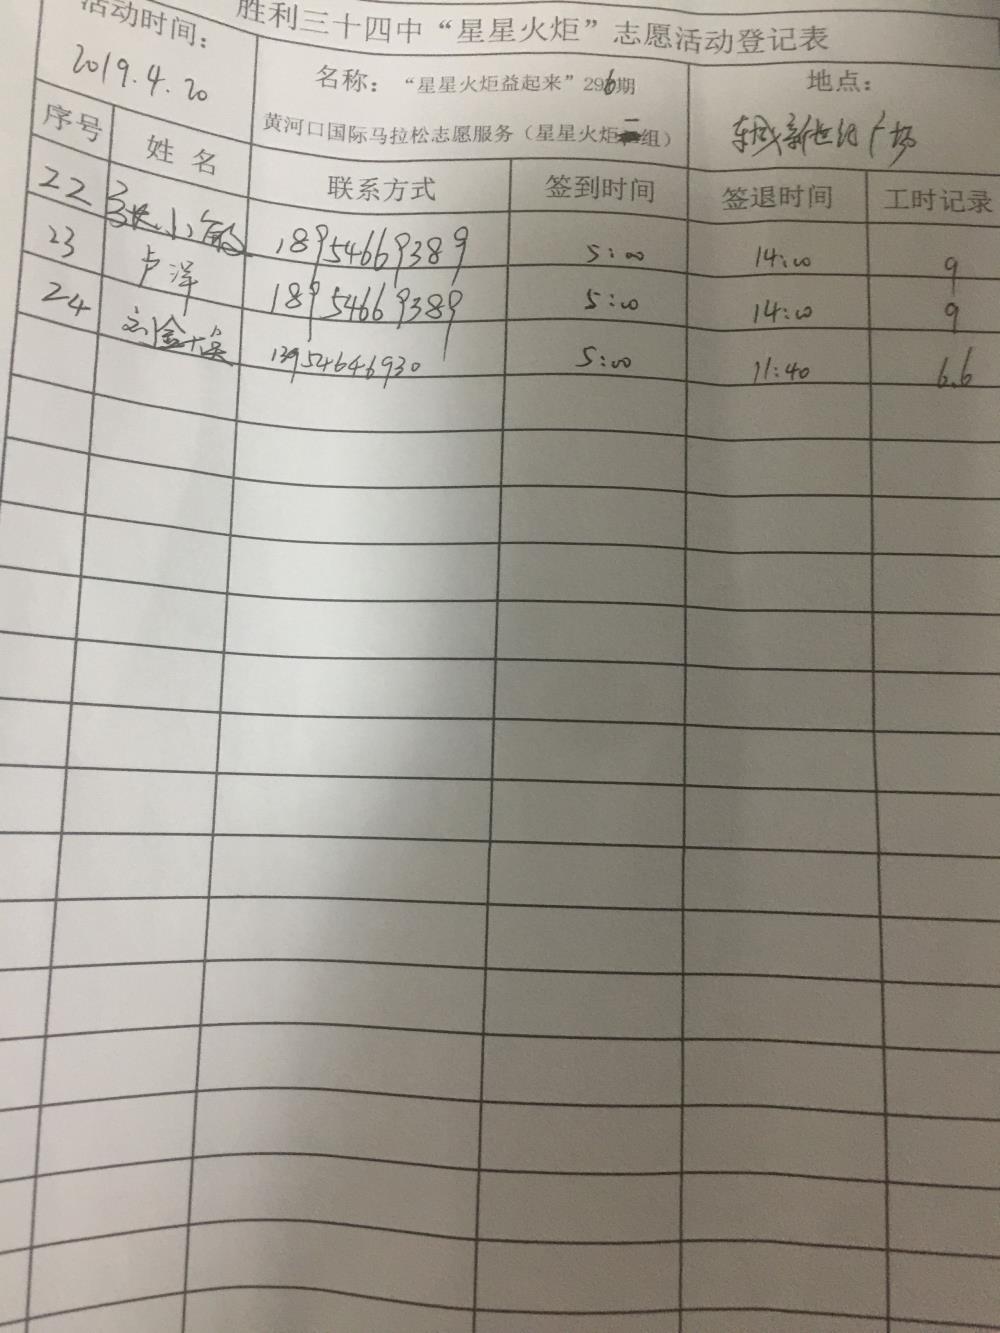 胜利三十四中“星星火炬”志愿活动登记表
活动时间：
2019.4.20
名称：“星星火炬益起来”296期
黄河口国际马拉松志愿服务（星星火炬二组）
地点：
东城新世纪广场
序号 姓名 联系方式 签到时间 签退时间 工时记录
22 小敏 18954669389 5:00 14:00 9
23 卢洋 18954669389 5:00 14:00 9
24 13954646930 5:00 11:40 6.6